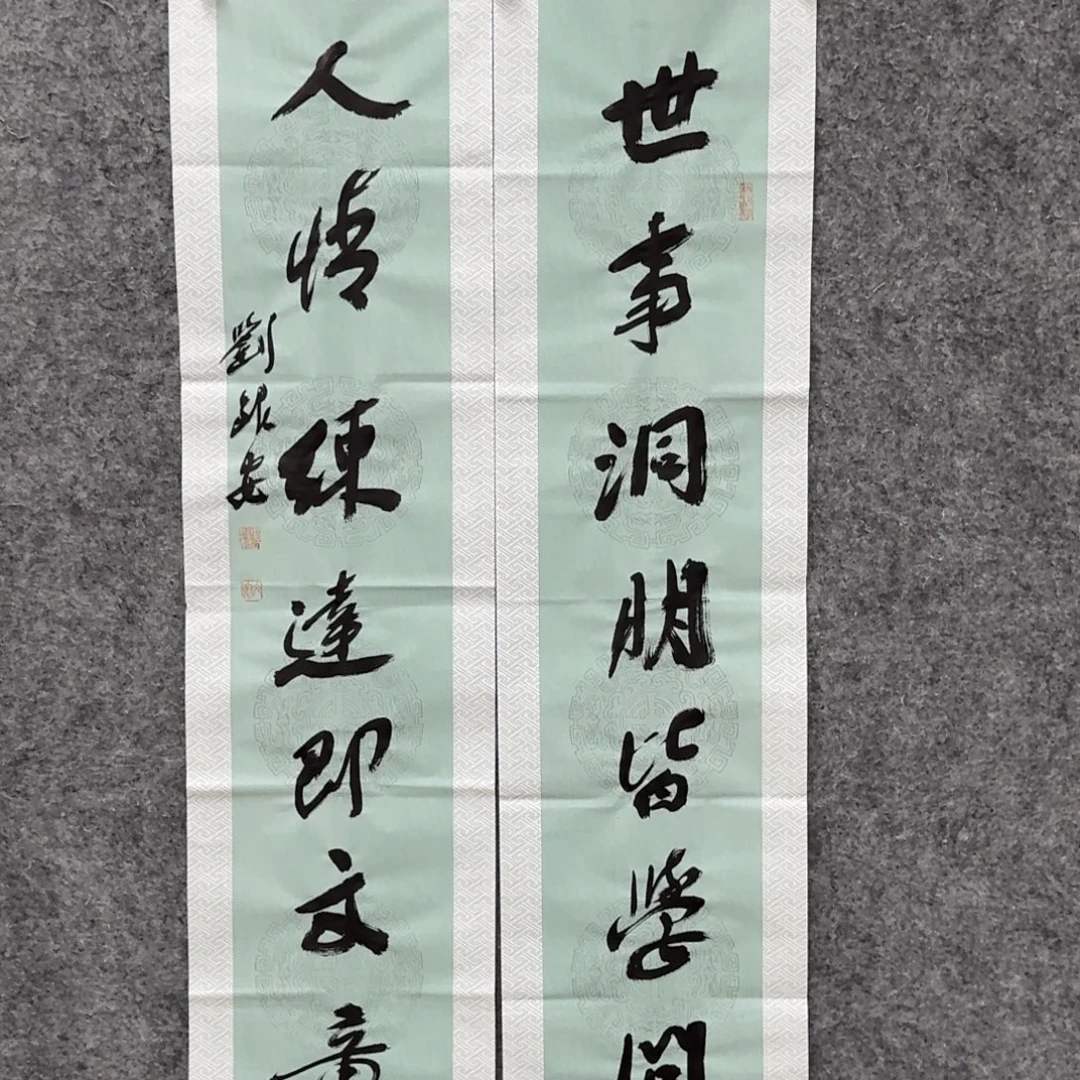 世事洞明皆學問
人情練達即文章
劉銀安